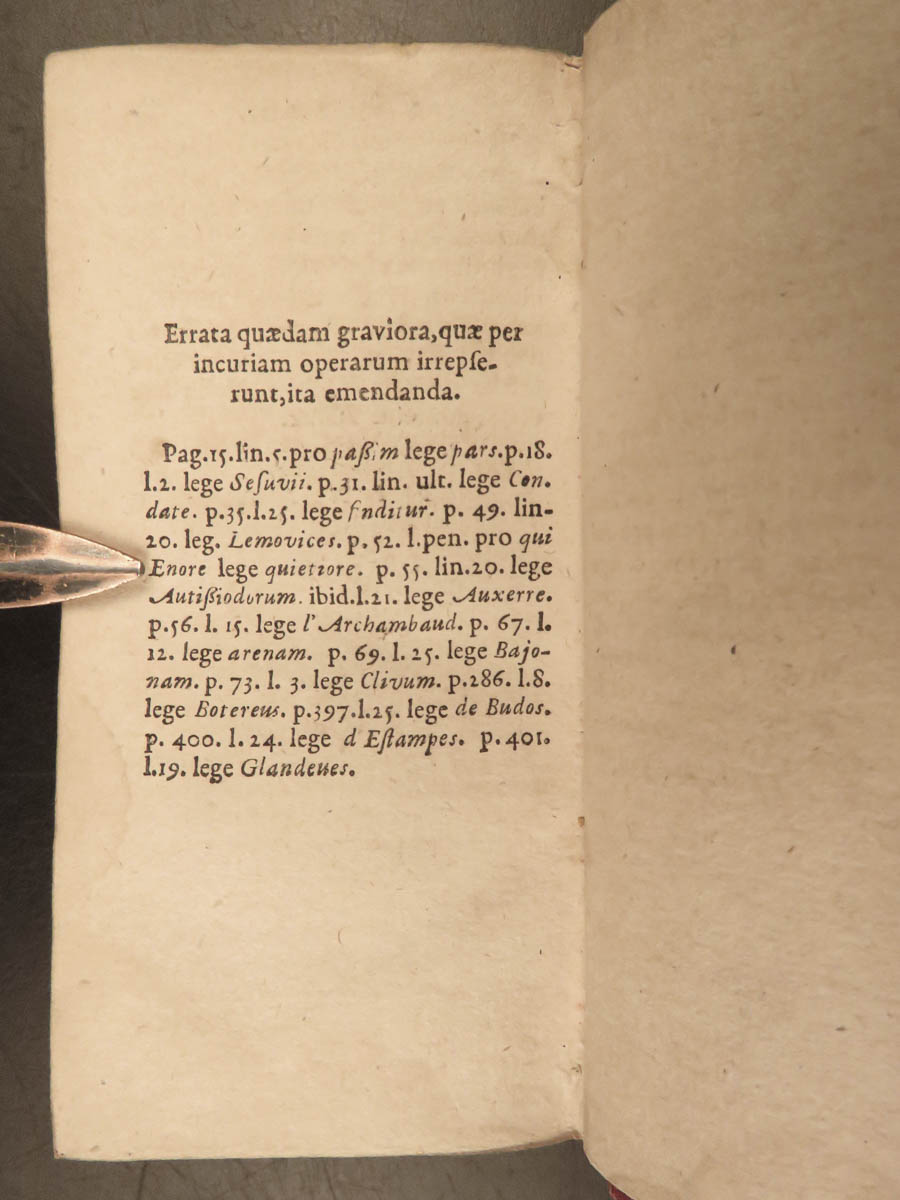 Errata quædam graviora,quæ per
incuriam operarum irrepſe-
runt,ita emendanda.
Pag.15.lin.5.pro paßim lege pars.p.18.
l.2. lege Seſuvii. p.31. lin. ult. lege Con-
date. p.35.l.25. lege fnditur. p. 49. lin-
20. leg. Lemovices. p. 52. l.pen. pro qui
Enore lege quietiore. p. 55. lin.20. lege
Autißiodorum. ibid.l.21. lege Auxerre.
p.56. l. 15. lege l'Archambaud. p. 67. l.
12. lege arenam. p. 69. l. 25. lege Bajo-
nam. p. 73. l. 3. lege Clivum. p.286. l.8.
lege Botereus. p.397.l.25. lege de Budos.
p. 400. l. 24. lege d Eſtampes. p. 401.
l.19. lege Glandeues.